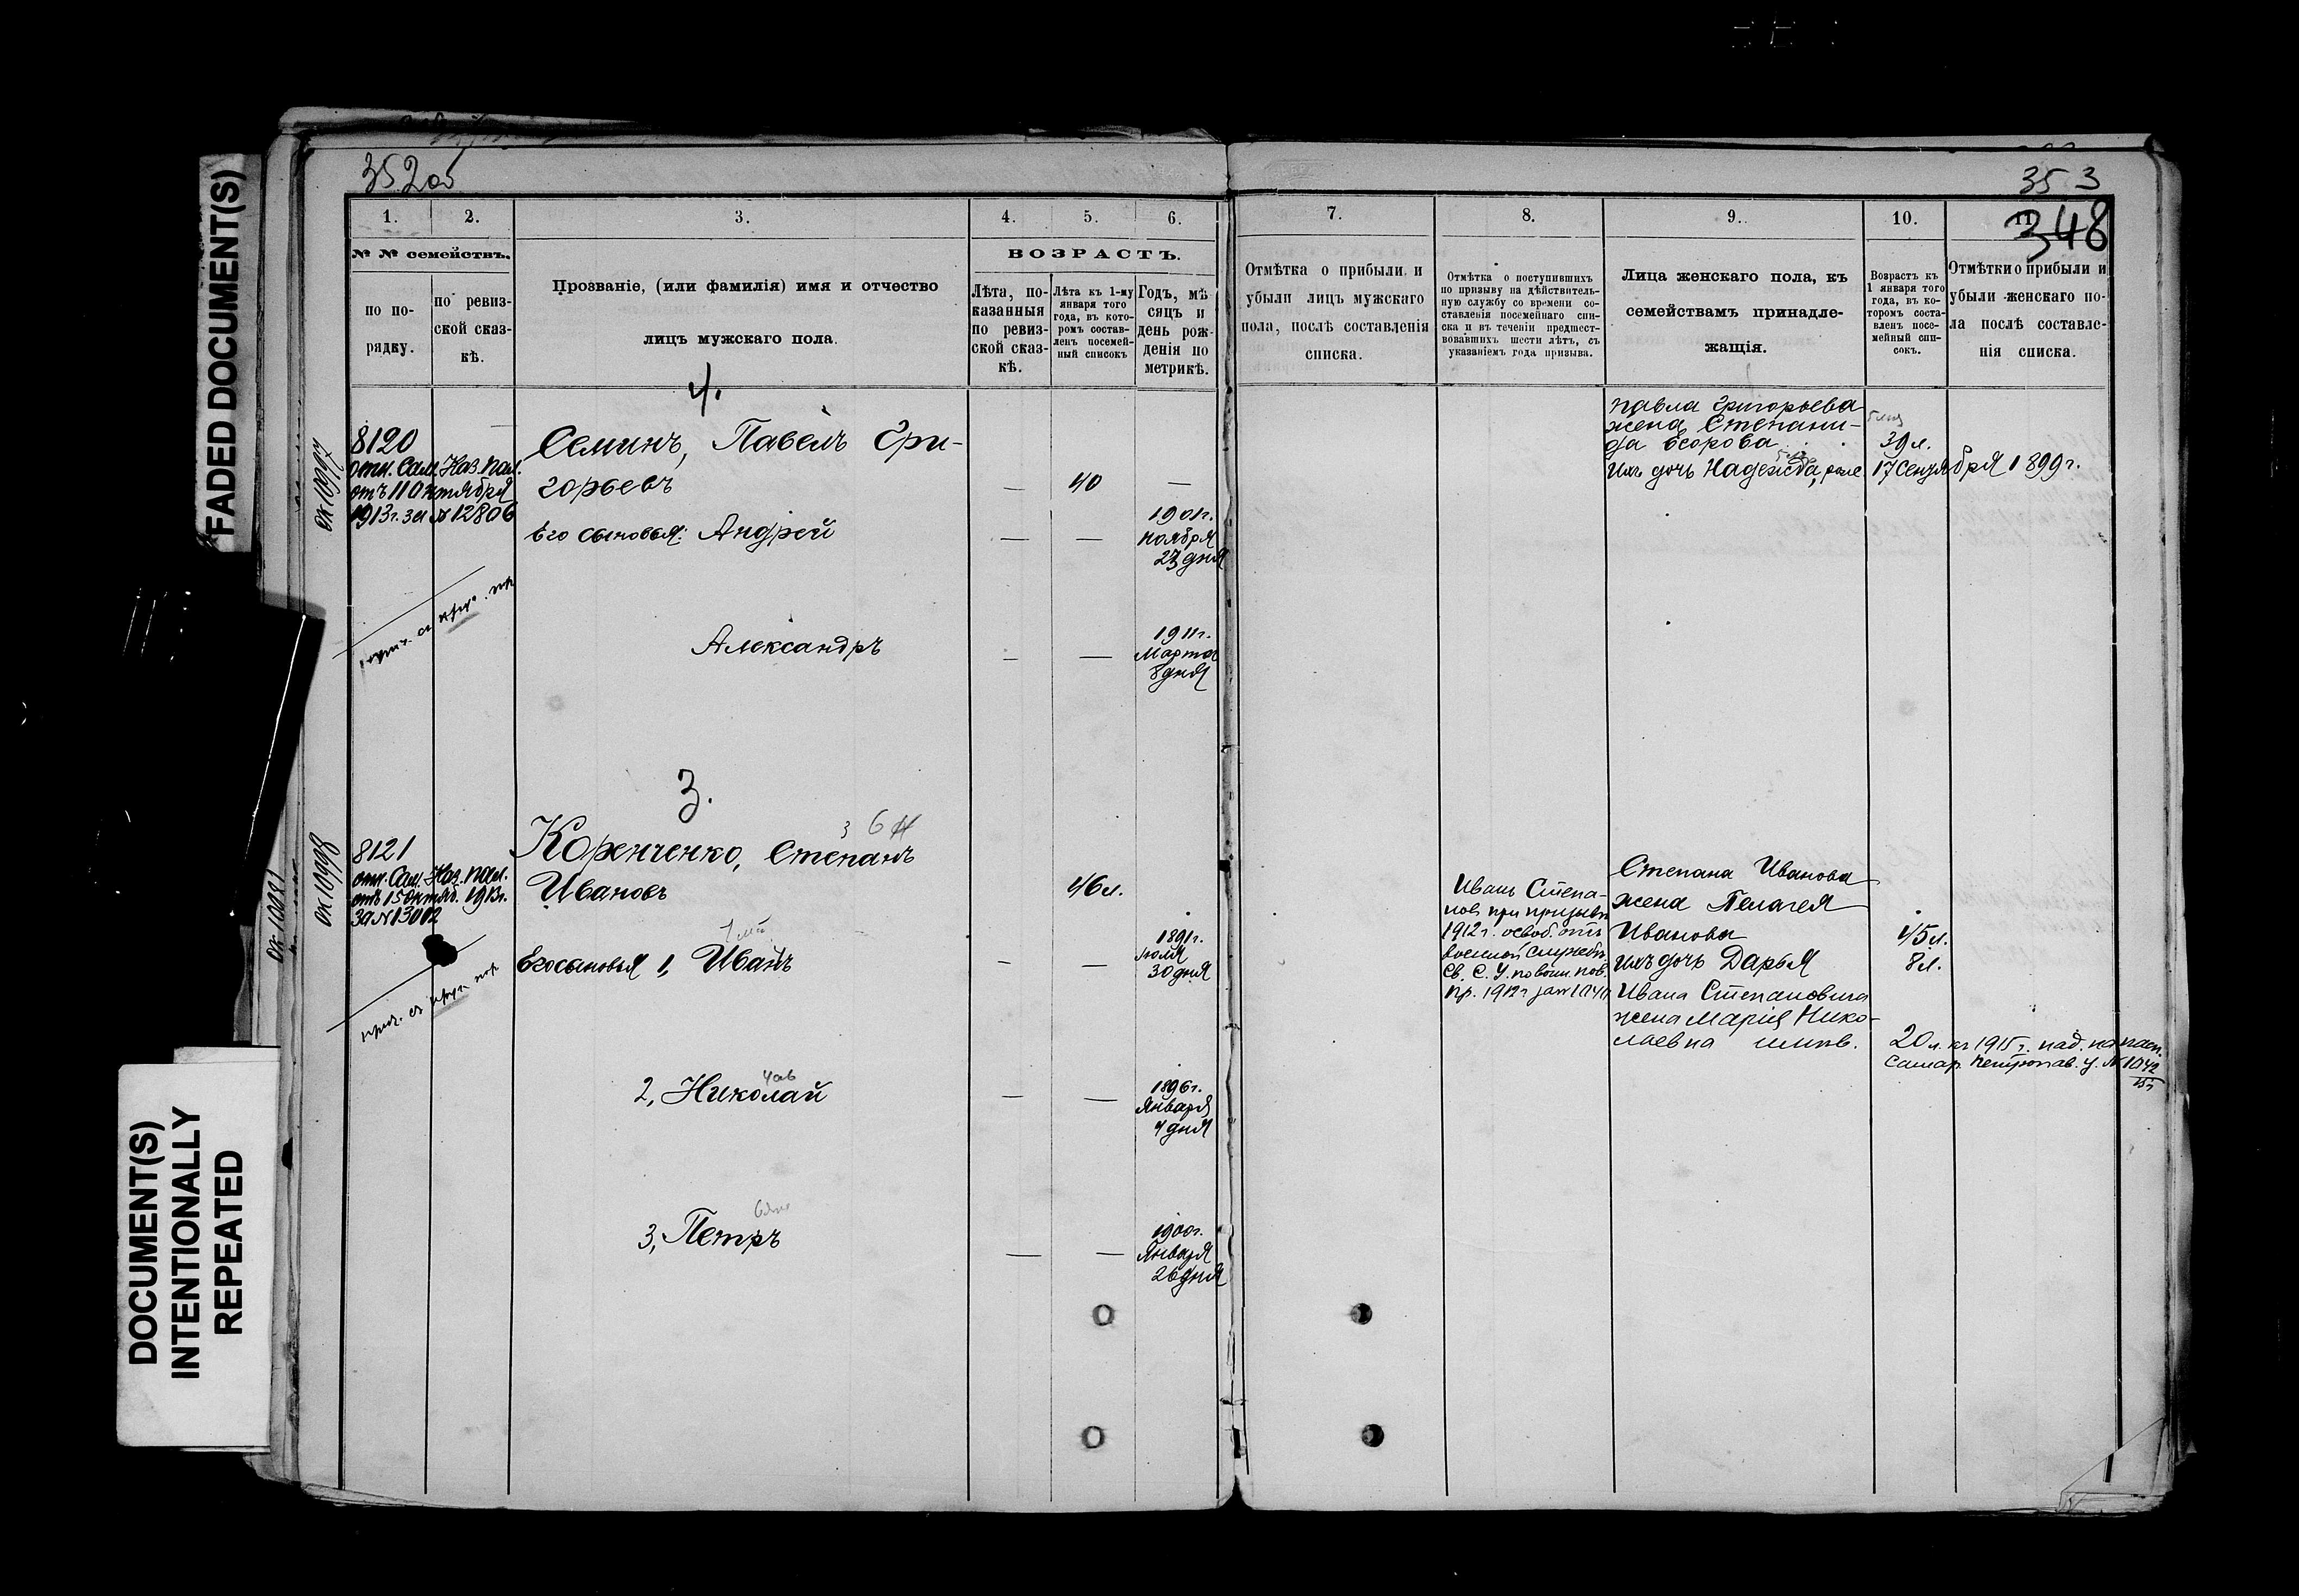 FADED DOCUMENT(S)
DOCUMENT(S)
INTENTIONALLY
REPEATED
352 об
1.
2.
3.
4.
5.
6.
№ № семействъ.
по по-
рядку.
по ревиз-
ской сказ-
кѣ.
Прозваніе, (или фамилія) имя и отчество
лицъ мужскаго пола.
ВОЗРАСТЪ.
Лѣта, по-
казанныя
по ревиз-
ской сказ-
кѣ.
Лѣта къ 1-му
января того
года, въ кото-
ромъ состав-
ленъ посемей-
ный списокъ
Годъ, мѣ
сяцъ и
день рож-
денія по
метрикѣ.
4.
ок 10997
8120
отн. Сам. Каз. пал.
отъ 11 октября
1913г. за № 12806
Семинъ, Павелъ Гри-
горьевъ
— 40 —
Его сыновья: Андрей
— —
1901г.
ноября
23 дня
Александръ
— —
1911г.
Марта
8 дня
3.
ок 10998
ок 10981
8121
отн. Сам. Каз. пал.
отъ 15 октяб. 1913г.
за № 13012
Коренченко, Степанъ
Ивановъ
46 л.
Его сыновья 1, Иванъ
— —
1891г.
Іюля
30 дня
2, Николай
— —
1896г.
Января
4 дня
3, Петръ
— —
1900г.
Января
26 дня
353
348
7.
8.
9.
10.
Отмѣтка о прибыли и
убыли лицъ мужскаго
пола, послѣ составленія
списка.
Отмѣтка о поступившихъ
по призыву на дѣйствитель-
ную службу со времени со-
ставленія посемейнаго спи-
ска и въ теченіи предшест-
вовавшихъ шести лѣтъ, съ
указаніемъ года призыва.
Лица женскаго пола, къ
семействамъ принадле-
жащія.
Возрастъ къ
1 января того
года, въ ко-
торомъ соста-
вленъ посе-
мейный спи-
сокъ.
Отмѣтки о прибыли и
убыли женскаго по-
ла послѣ составле-
нія списка.
Павла Григорьева
жена Степани-
да Егорова
39 л.
Ихъ дочь Надежда, 17 Сентября 1899г.
Иванъ Степа-
новъ при призывѣ
1912г. освоб. отъ
военной службы
Св. С. У. по воин. пов.
пр. 1912г за №
Степана Иванова
жена Пелагея
Иванова
45 л.
Ихъ дочь Дарья
8 л.
Ивана Степановича
жена Марія Нико-
лаевна
20 л. къ 1915г.